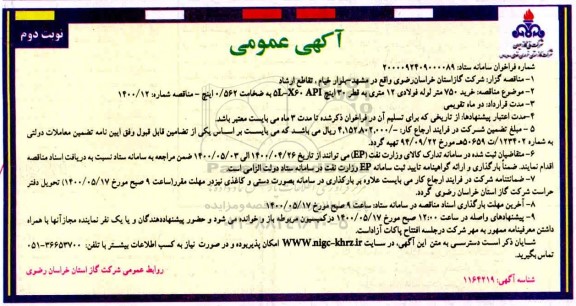 نوبت دوم
آگهی عمومی
شماره فراخوان سامانه ستاد: ۲۰۰۰۰۹۲۴۰۹۰۰۰۰۸۹
۱- مناقصه گزار: شرکت گازاستان خراسان‌رضوی واقع در مشهد-بلوار خیام، تقاطع ارشاد
۲- موضوع مناقصه: خرید ۷۵۰ متر لوله فولادی ۱۲ متری به قطر ۳۰ اینچ ۵L-X۶۰ API به ضخامت ۰/۵۶۲ اینچ - مناقصه شماره: ۱۴۰۰/۱۲
۳- مدت قرارداد: دو ماه تقویمی
۴-مدت اعتبار پیشنهادها: از تاریخی که برای تسلیم آن در فراخوان ذکرشده تا مدت ۳ ماه می بایست معتبر باشد.
۵ - مبلغ تضمین شرکت در فرایند ارجاع کار: -/۴.۱۵۲.۸۰۲.۰۰۰ ریال می باشد که می بایست بر اساس یکی از تضامین قابل قبول وفق آیین نامه تضمین معاملات دولتی
به شماره ۱۲۳۴۰۲/ت۵۰۶۵۹هـ مورخ ۹۴/۰۹/۲۲ تهیه گردد.
۶-متقاضیان ثبت شده در سامانه تدارک کالای وزارت نفت (EP) می توانند از تاریخ ۱۴۰۰/۰۴/۲۶ الی ۱۴۰۰/۰۵/۰۳ ضمن مراجعه به سامانه ستاد نسبت به دریافت اسناد مناقصه
اقدام نمایند. ضمناً بارگذاری و ارائه گواهینامه تایید ثبت سامانه EP وزارت نفت در سامانه ستاد دولت الزامی است.
۷- ضمانتنامه شرکت در فرایند ارجاع کار می بایست علاوه بر بارگذاری در سامانه بصورت دستی و کاغذی نیزدر مهلت مقرر(ساعت ۹ صبح مورخ ۱۴۰۰/۰۵/۱۷) تحویل دفتر
حراست شرکت گاز استان خراسان رضوی گردد.
۸- آخرین مهلت بارگذاری اسناد مناقصه در سامانه ستاد: ساعت ۹ صبح مورخ ۱۴۰۰/۰۵/۱۷
۹- پیشنهادهای واصله در ساعت ۱۲:۰۰ صبح مورخ ۱۴۰۰/۰۵/۱۷ درکمیسیون مربوطه باز و خوانده می شود و حضور پیشنهاددهندگان و یا یک نفر نماینده مجازآنها با همراه
داشتن معرفینامه ممهور به مهر شرکت درجلسه افتتاح پاکات آزاداست.
شایان ذکر است دسترسی به متن این آگهی، در سایت WWW.nigc-khrz.ir امکان پذیربوده و در صورت نیاز به کسب اطلاعات بیشتر با تلفن: ۳۶۶۵۳۷۰۰-۰۵۱
تماس بگیرید.
روابط عمومی شرکت گاز استان خراسان رضوی
شناسه آگهی: ۱۱۶۴۲۱۹